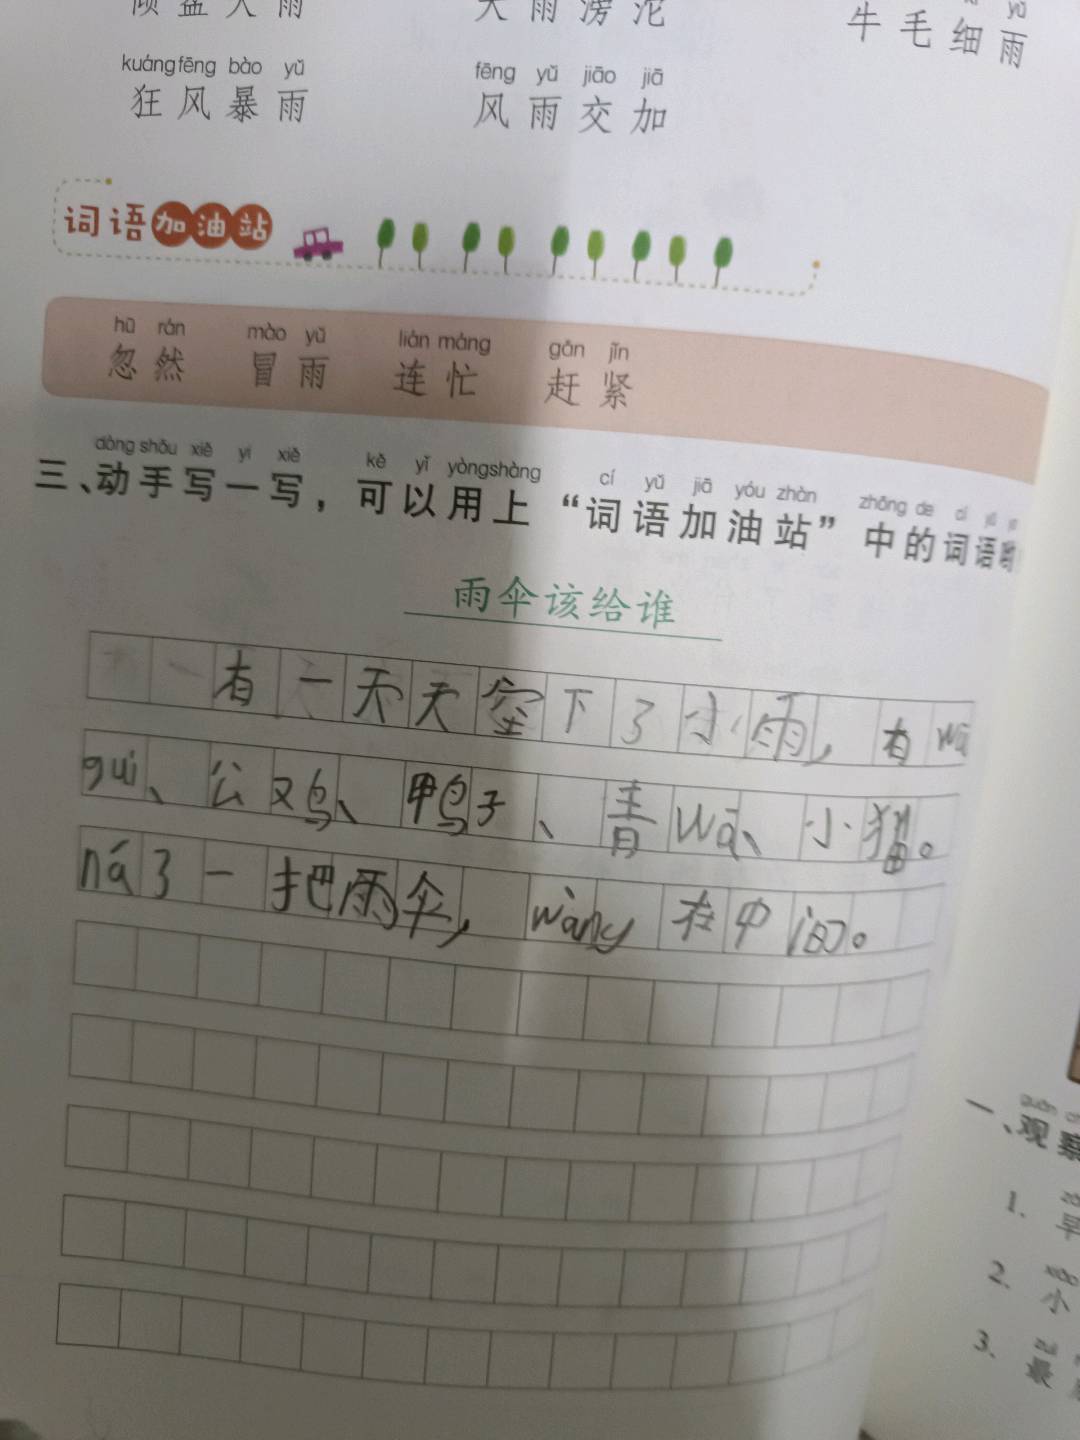 倾盆大雨 大雨滂沱 牛毛细雨 yǔ
kuáng fēng bào yǔ fēng yǔ jiāo jiā
狂风暴雨 风雨交加
词语加油站
hū rán mào yǔ lián máng gǎn jǐn
忽然 冒雨 连忙 赶紧
dòng shǒu xiě yi xiě kě yǐ yòng shàng cí yǔ jiā yóu zhàn zhōng de cí yǔ yo
三、动手写一写，可以用上“词语加油站”中的词语哟
雨伞该给谁
有一天天空下了小雨，有wū
guī、公又鸟、鸭子、青wā、小猫。
ná了一把雨伞，wàng在中间。
guān
一、观察
1. 早
xiǎo
2. 小
zuì
3. 最